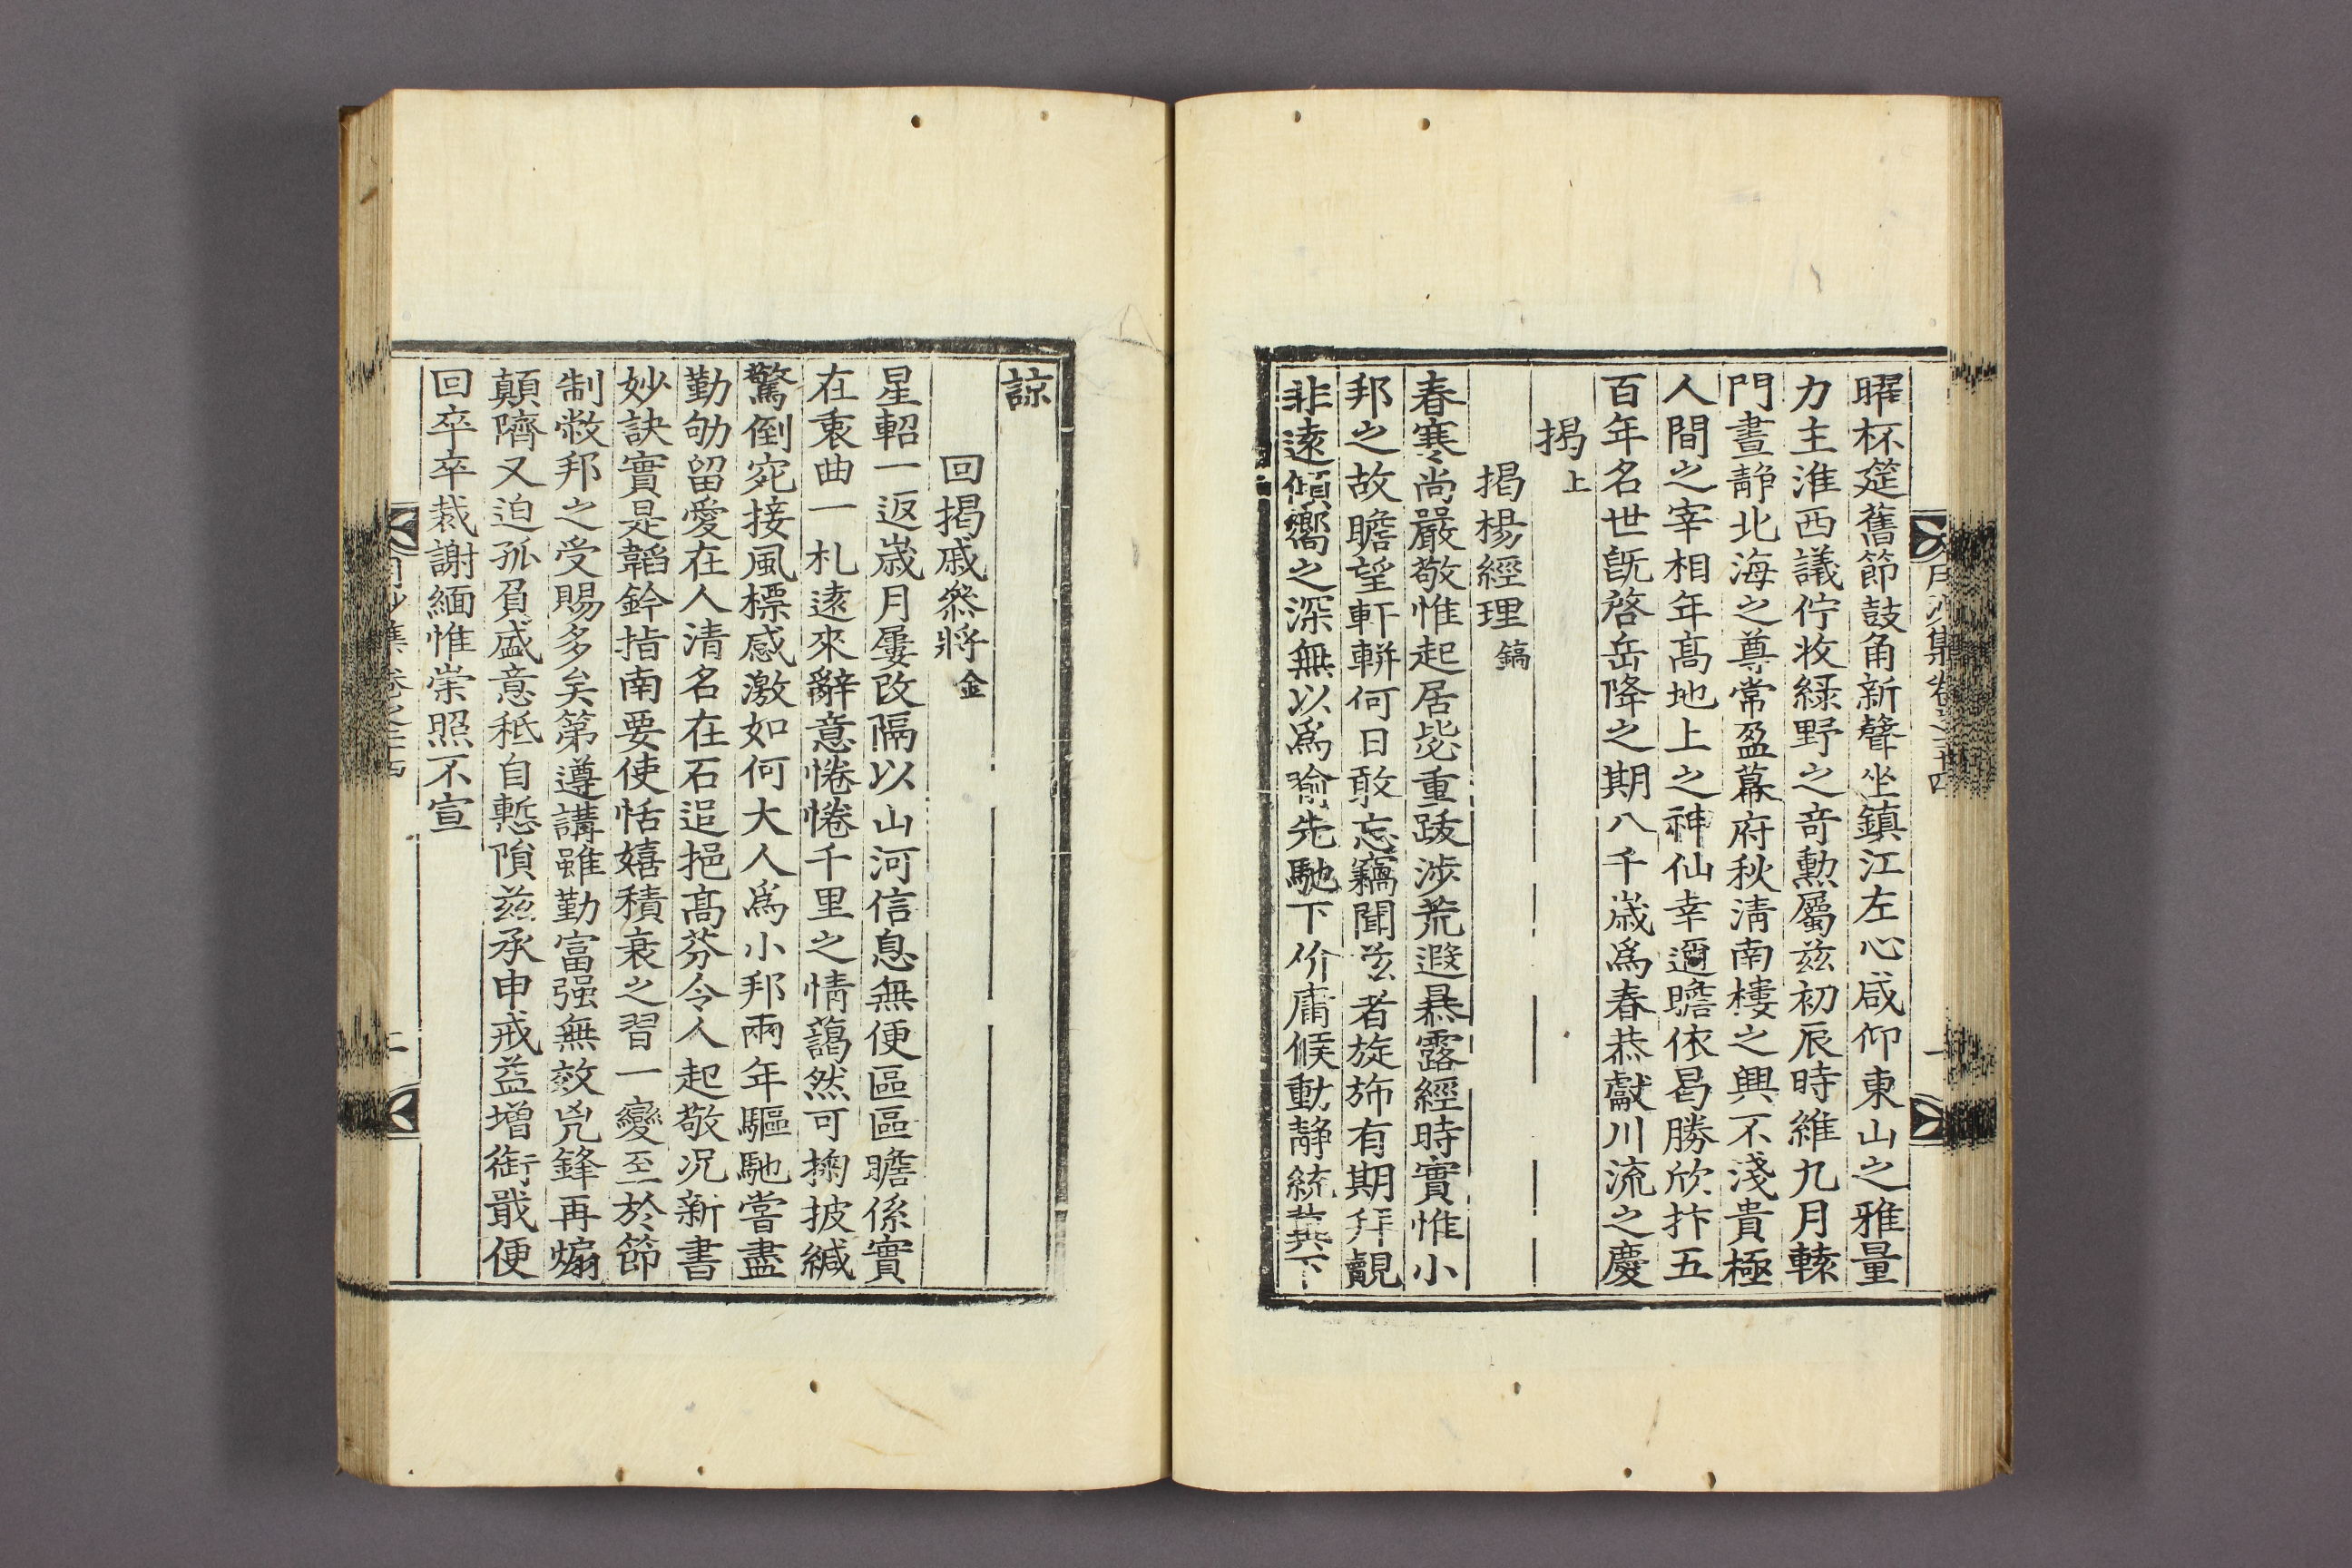 月沙集卷之三十四 一
曜杯筵舊節鼓角新聲坐鎭江左心咸仰東山之雅量
力主淮西議佇收綠野之奇勳屬玆初辰時維九月轅
門晝靜北海之尊常盈幕府秋淸南樓之興不淺貴極
人間之宰相年高地上之神仙幸邇瞻依曷勝欣抃五
百年名世旣啓岳降之期八千歲爲春恭獻川流之慶
揭上
揭楊經理鎬
春寒尙嚴敬惟起居毖重跋涉荒遐暴露經時實惟小
邦之故瞻望軒輧何日敢忘竊聞玆者旋斾有期拜覿
非遠傾嚮之深無以爲喩先馳下价庸候動靜統蘄下
諒
回揭戚參將金
星軺一返歲月屢改隔以山河信息無便區區瞻係實
在衷曲一札遠來辭意惓惓千里之情藹然可掬披緘
驚倒宛接風標感激如何大人爲小邦兩年驅馳嘗盡
勤劬留愛在人淸名在石追挹高芬令人起敬况新書
妙訣實是韜鈐指南要使恬嬉積衰之習一變至於節
制敝邦之受賜多矣第遵講雖勤富强無效兇鋒再煽
顚隮又迫孤負盛意秪自慙隕玆承申戒益增銜戢便
回卒卒裁謝緬惟崇照不宣
月沙集卷之三十四 二